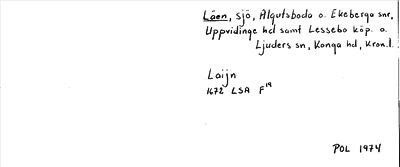 Läen, sjö, Algutsboda o. Ekeberga snr,
Uppvidinge hd samt Lessebo köp. o.
Ljuders sn, Konga hd, Kron.l.
Laijn
1672 LSA F19
POL 1974